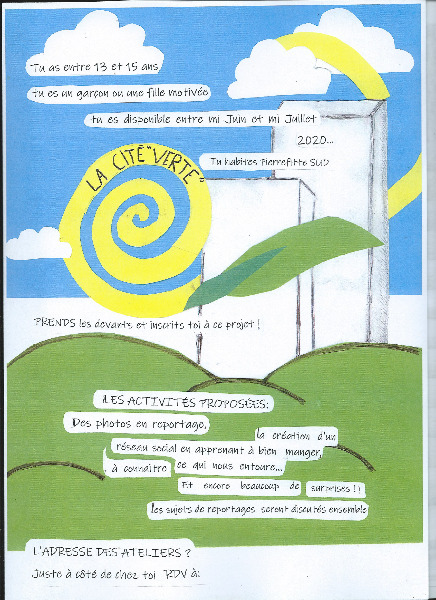 Tu as entre 13 et 15 ans
tu es un garçon ou une fille motivée
tu es disponible entre mi Juin et mi Juillet
2020...
Tu habites Pierrefitte SUD
LA CITÉ "VERTE"
PRENDS les devants et inscrits toi à ce projet !
LES ACTIVITÉS PROPOSÉES:
Des photos en reportage,
la création d'un
réseau social en apprenant à bien manger,
à connaître ce qui nous entoure...
Et encore beaucoup de surprises !)
les sujets de reportages seront discutés ensemble
L'ADRESSE DES ATELIERS ?
Juste à côté de chez toi RDV à: